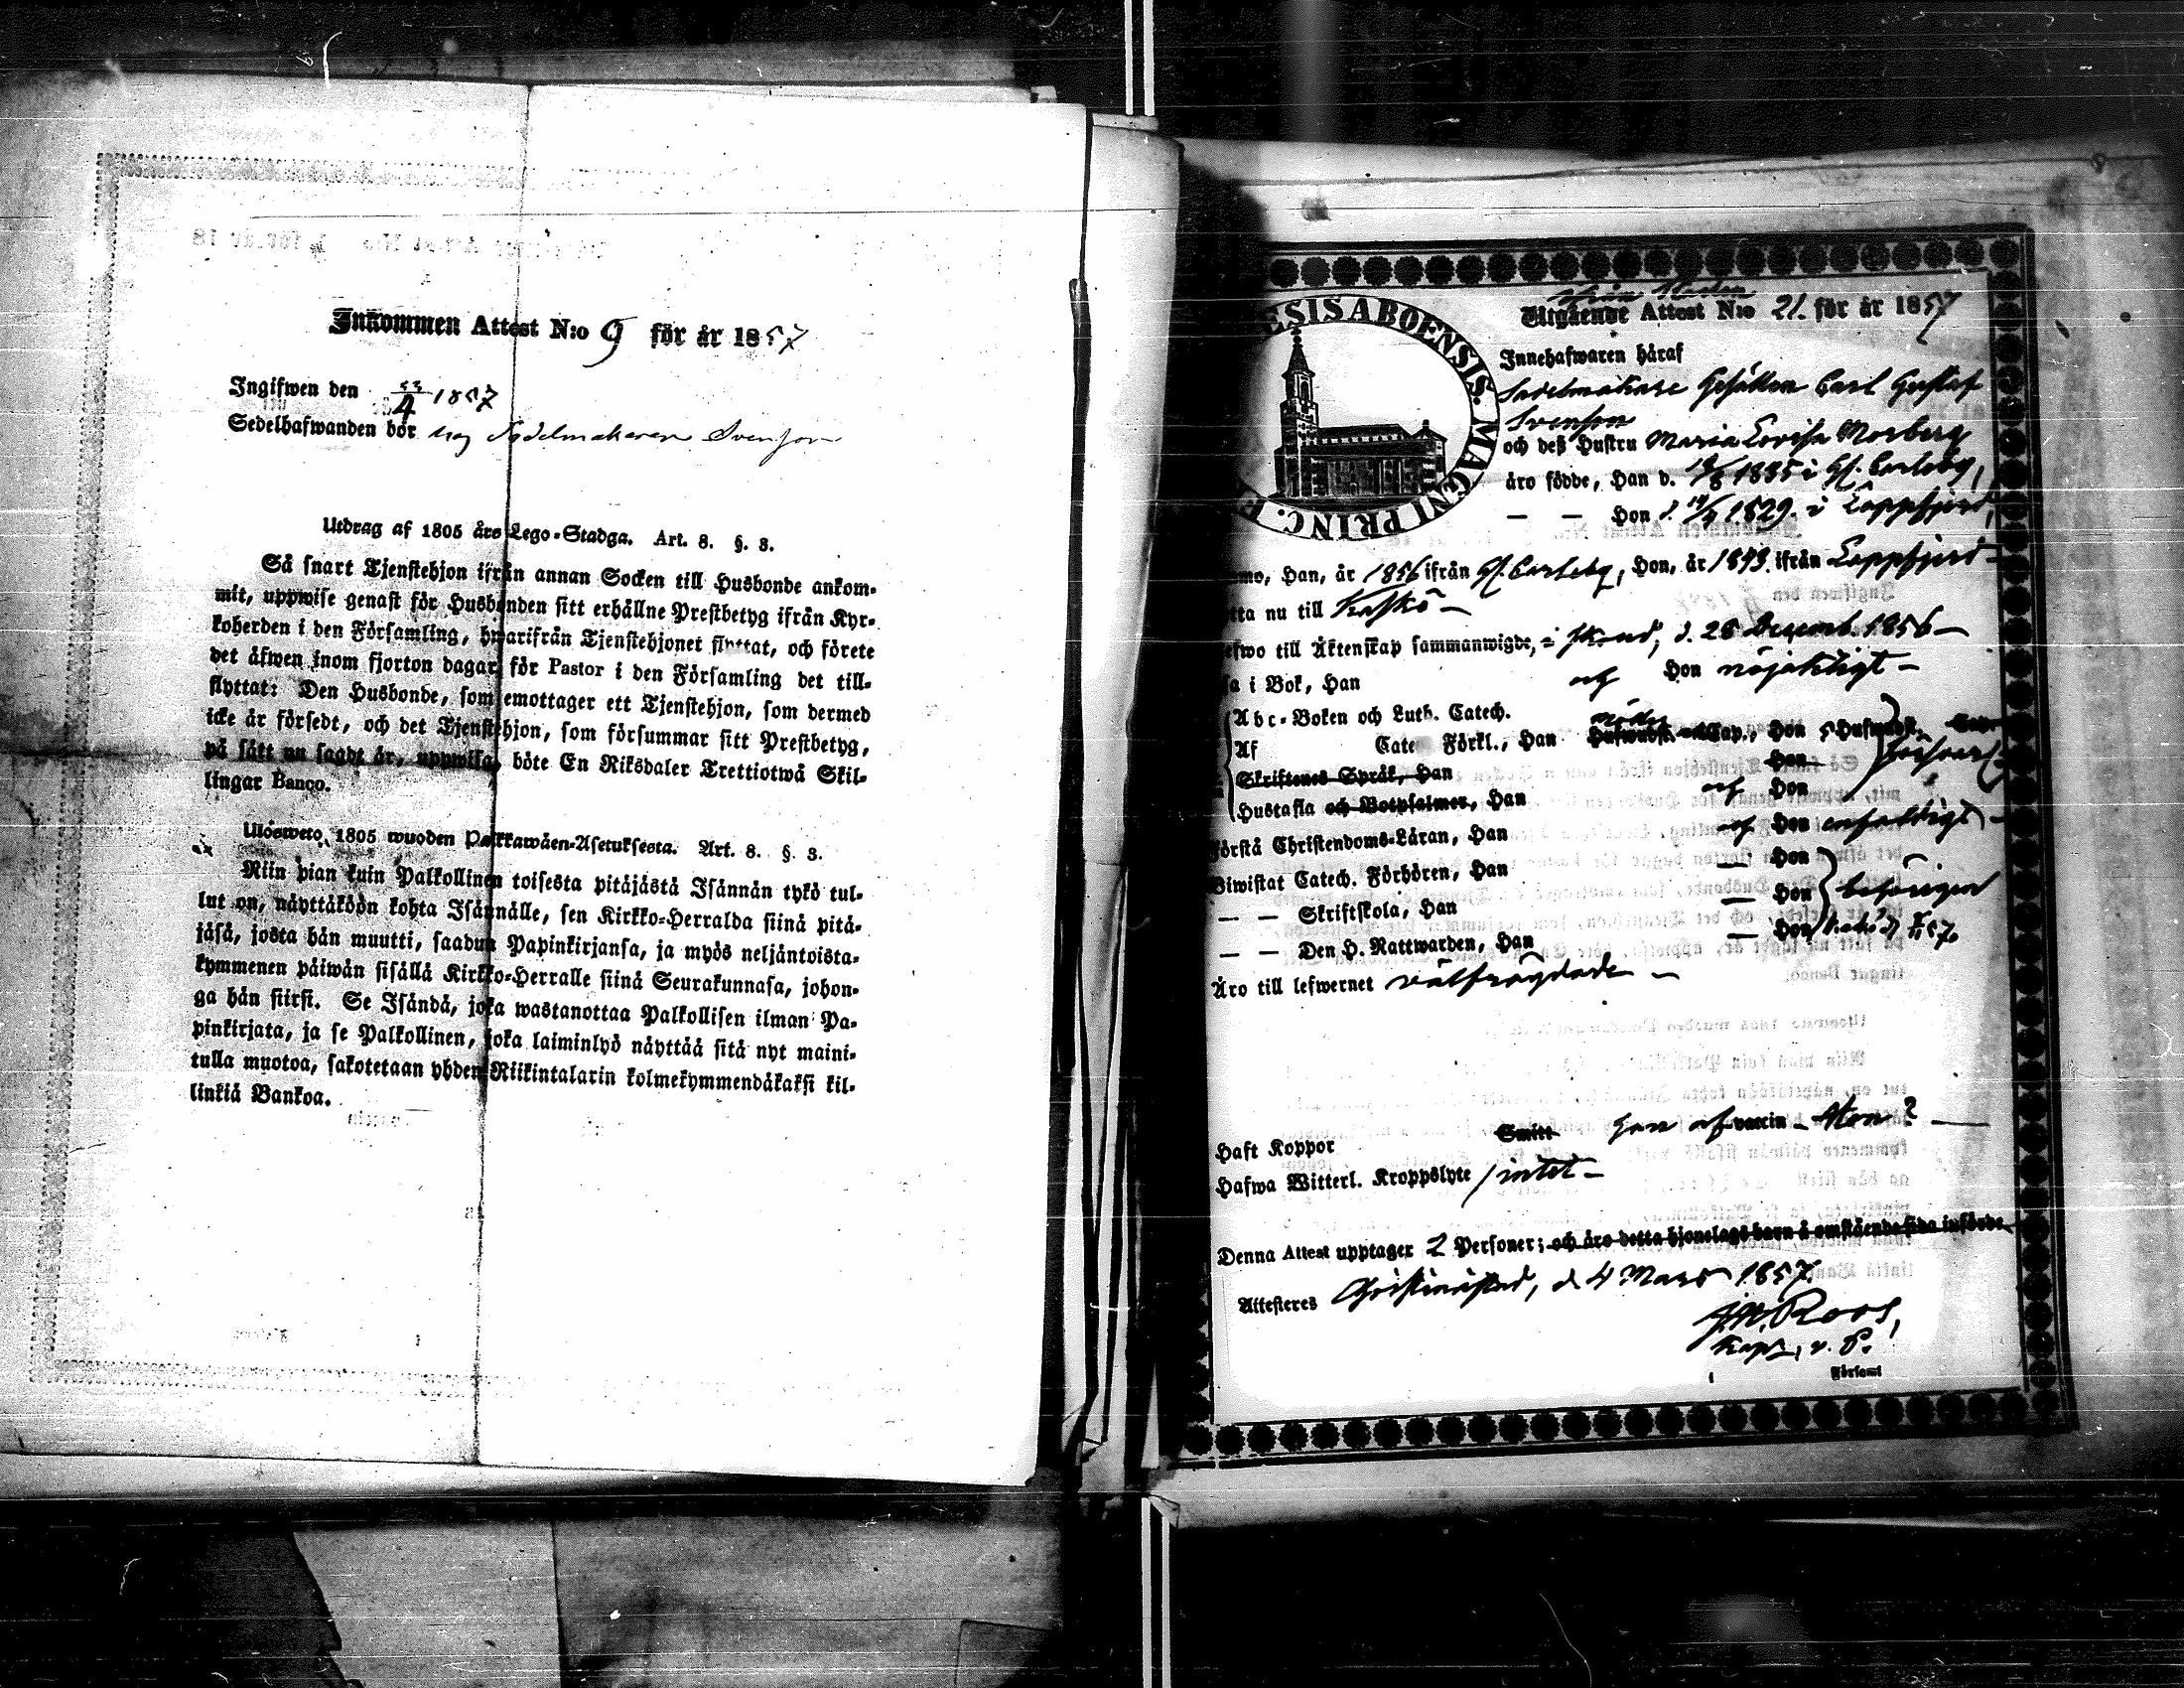 Inkommen Attest N:o 9 för år 1857
Ingifwen den 23/4 1857
Sedelhafwanden bor hos Sadelmakaren Svenson
Utdrag af 1805 års Lego-Stadga. Art. 8. §. 3.
Så snart Tjenstehjon ifrån annan Socken till Husbonde ankom-
mit, uppwise genast för Husbonden sitt erhållne Prestbetyg ifrån Kyr-
koherden i den Församling, hwarifrån Tjenstehjonet flyttat, och förete
det äfwen inom fjorton dagar för Pastor i den Församling det till-
flyttat: Den Husbonde, som emottager ett Tjenstehjon, som dermed
icke är försedt, och det Tjenstehjon, som försummar sitt Prestbetyg,
på sätt nu sagdt är, uppwisa, böte En Riksdaler Trettiotwå Skil-
lingar Banco.
Ulosweto 1805 wuoden Palkkawäen-Asetuksesta. Art. 8. §. 3.
Niin pian kuin Palkollinen toisesta pitäjästä Isännän tykö tul-
lut on, näyttäköön kohta Isännälle, sen Kirkko-Herralda siinä pitä-
jäsä, josta hän muutti, saadun Papinkirjansa, ja myös neljäntoista-
kymmenen päiwän sisällä Kirkko-Herralle siinä Seurakunnasa, johon-
ga hän siirsi. Se Isändä, joka wastanottaa Palkollisen ilman Pa-
pinkirjata, ja se Palkollinen, joka laiminlyö näyttää sitä nyt maini-
tulla muotoa, sakotetaan yhden Riikintalarin kolmekymmendäkaksi kil-
linkiä Bankoa.
ESIS ABOENSIS. MAGNI PRINC. F
Utgående Attest N:o 21. för år 1857
Innehafwaren häraf
Sadelmakare Gesällen Carl Gustaf
Svenson
och deß Hustru Maria Lovisa Morberg
äro födde, Han d. 1835 i Gl. Carleby,
— — Hon d. 1829. i Lappfjerd,
mo, Han, år 1856 ifrån Gl. Carleby, Hon, år 1849. ifrån Lappfjerd —
tta nu till Kaskö —
efwo till Äktenskap sammanwigde, i d. 28 Decemb. 1856 —
sa i Bok, Han och Hon nöjaktigt —
Abc-Boken och Luth. Catech.
Af Cate Förkl., Han Cap., Hon
Skriftenes Språk, Han Hon
Hustafla och Botpsalmer, Han och Hon försvarl.
örstå Christendoms-Läran, Han och Hon enfaldigt —
Biwistat Catech. Förhören, Han — Hon
— — Skriftskola, Han — Hon behörigen
— — Den H. Nattwarden, Han — Hon
Äro till lefwernet välfrägdade —
Haft Koppor Smitt Han af vaccin — Hon? —
Hafwa Witterl. Kroppslyte intet —
Denna Attest upptager 2 Personer; och äro detta hjonelags barn å omstående sida införde.
Attesteres Christinestad, d 4 Mars 1857
Roos,
Kapl., v. P.
Församl